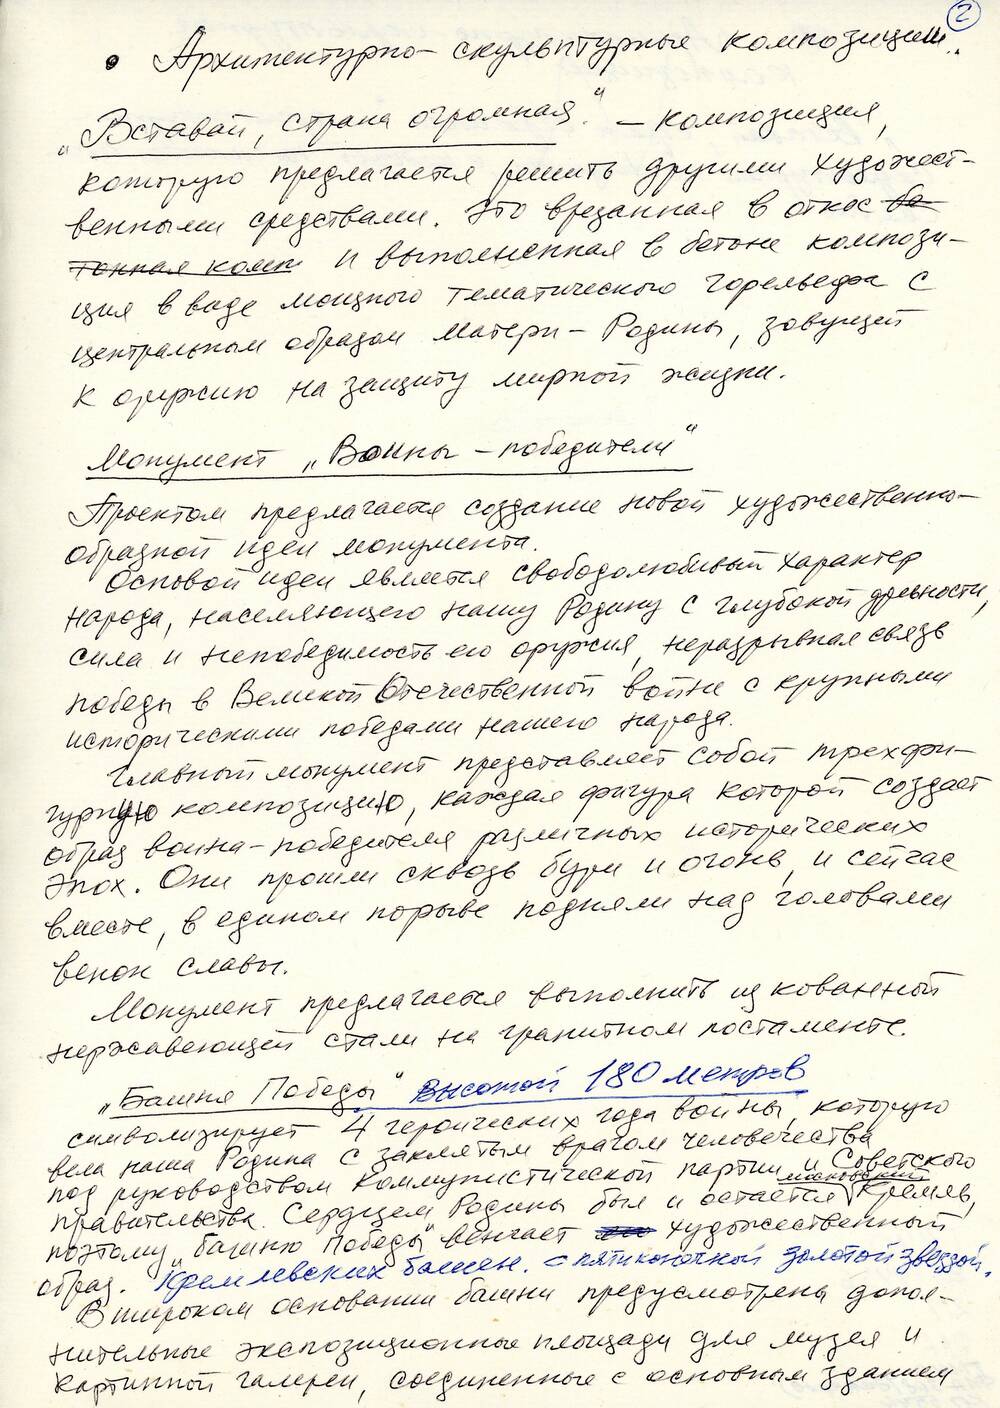 2
• Архитектурно-скульптурные композиции.
„Вставай, страна огромная." – композиция,
которую предлагается решить другими художест-
венными средствами. Это врезанная в откос бе-
тонная комп и выполненная в бетоне компози-
ция в виде мощного тематического горельефа с
центральным образом Матери-Родины, зовущей
к оружию на защиту мирной жизни.
Монумент „Воины-победители"
Проектом предлагается создание новой художественно-
образной идеи монумента.
Основой идеи является свободолюбивый характер
народа, населяющего нашу Родину с глубокой древности,
сила и непобедимость его оружия, неразрывная связь
победы в Великой Отечественной войне с крупными
историческими победами нашего народа.
Главный монумент представляет собой трехфи-
гурную композицию, каждая фигура которой создает
образ воина-победителя различных исторических
эпох. Они прошли сквозь бури и огонь, и сейчас
вместе, в едином порыве подняли над головами
венок славы.
Монумент предлагается выполнить из кованной
нержавеющей стали на гранитном постаменте.
„Башня Победы" высотой 180 метров
символизирует 4 героических года войны, которую
вела наша Родина с заклятым врагом человечества
под руководством Коммунистической партии и Советского
правительства. Сердцем Родины был и остается московский Кремль,
поэтому „башню Победы" венчает художественный
образ. Кремлевских башен. с пятиконечной золотой звездой.
В широком основании башни предусмотрены допол-
нительные экспозиционные площади для музея и
картинной галереи, соединенные с основным зданием